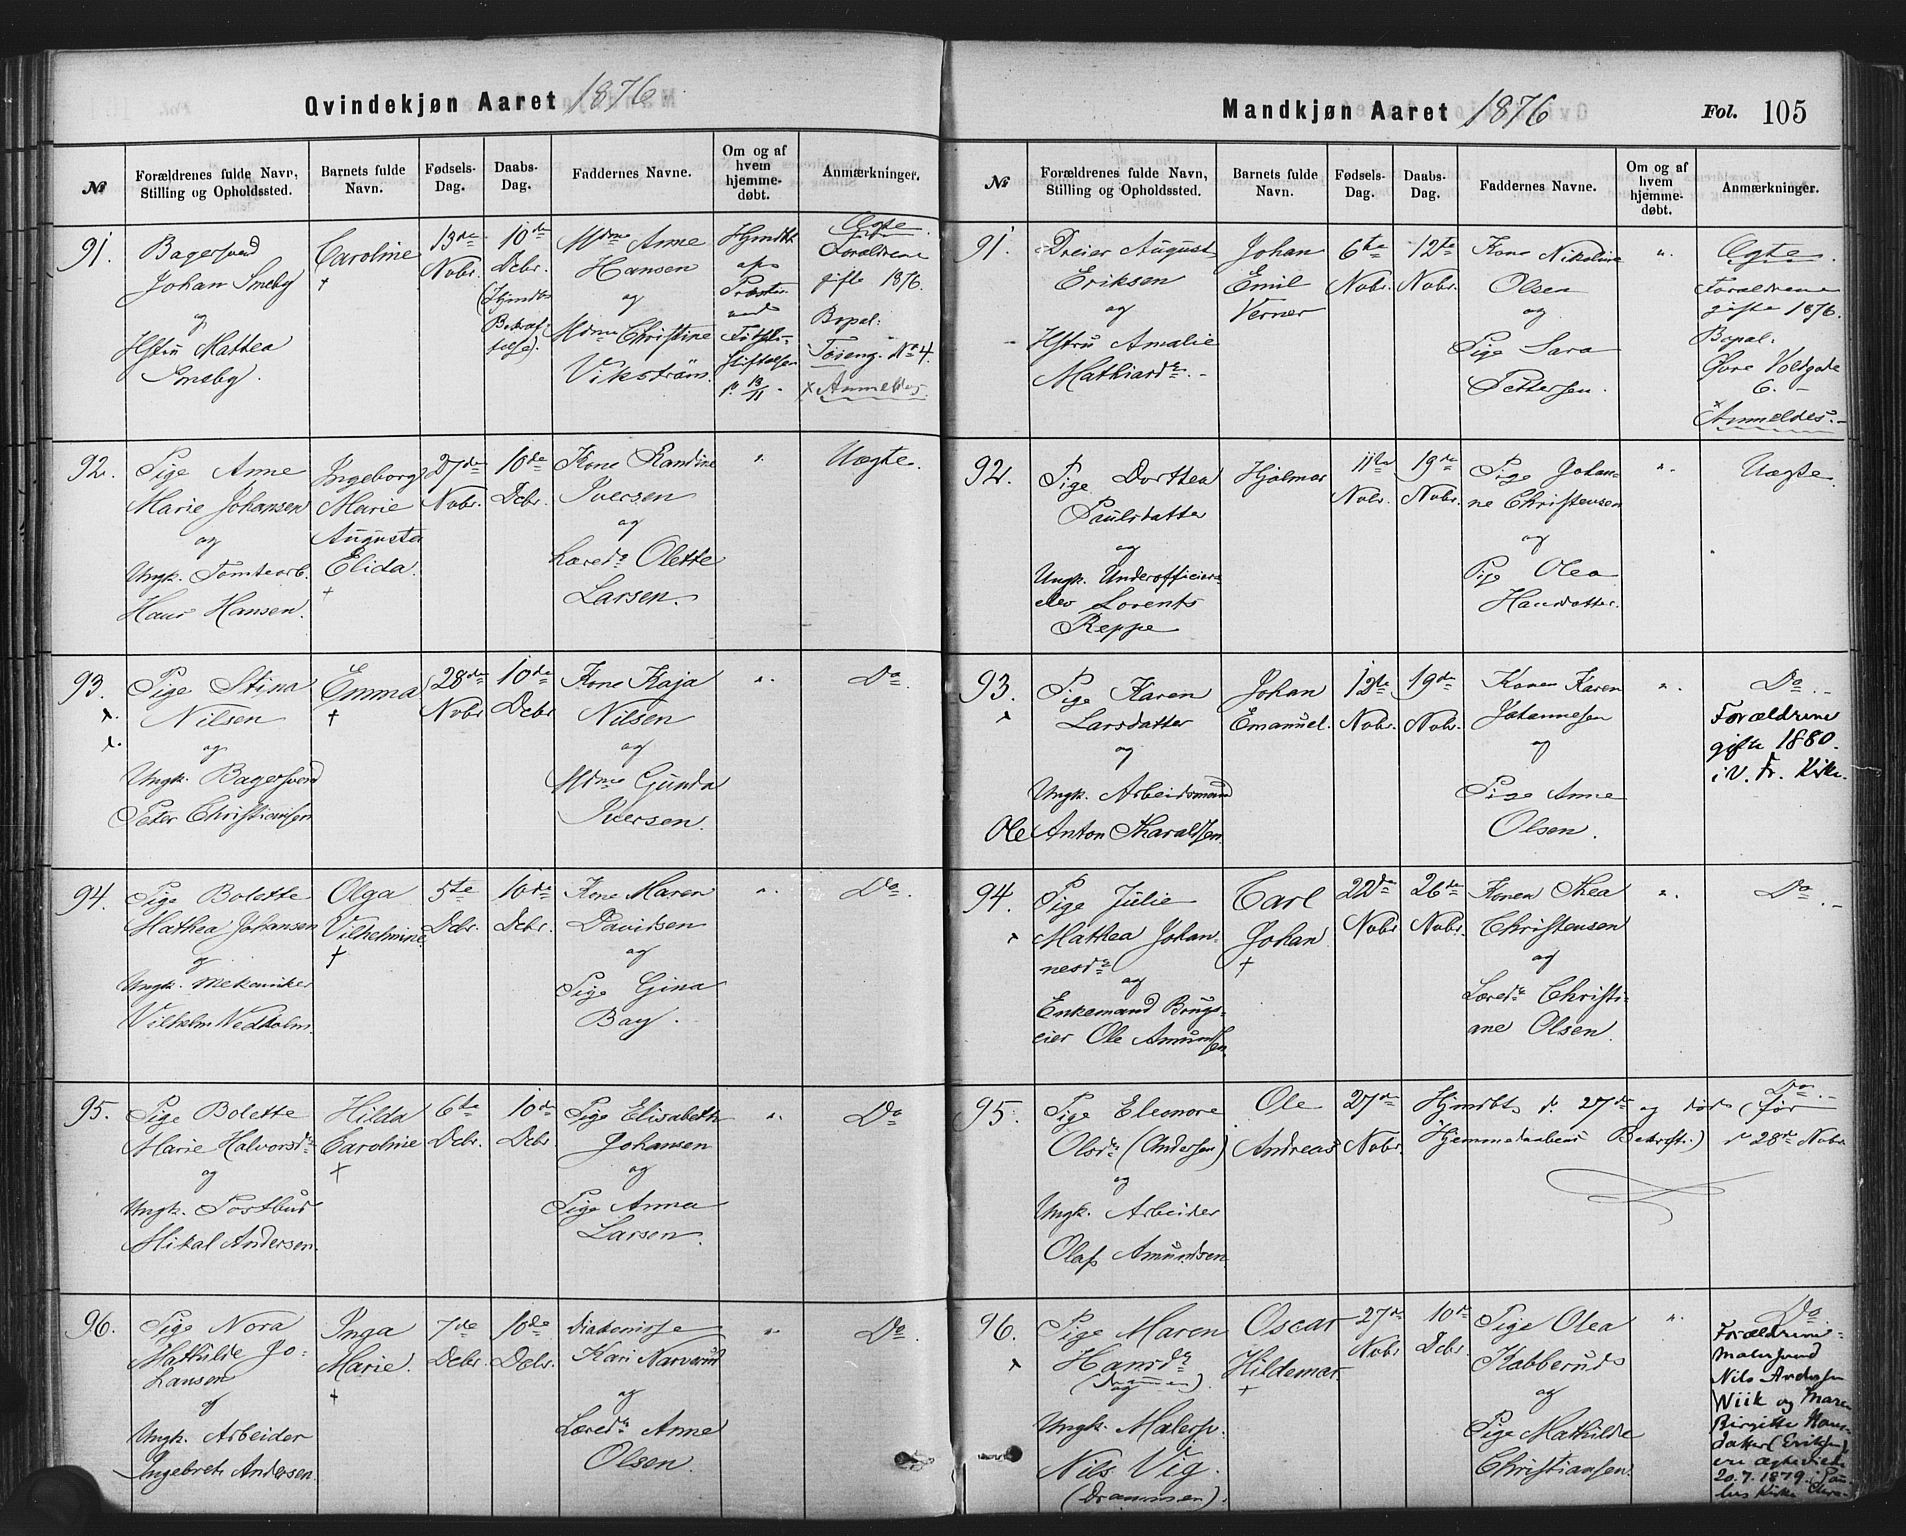 Qvindekjøn Aaret 1876.
№
Forældrenes fulde Navn, Stilling og Opholdssted.
Barnets fulde Navn.
Fødsels-Dag.
Daabs-Dag.
Faddernes Navne.
Om og af hvem hjemme-døbt.
Anmærkninger.
91.
Bagersvend
Johan Smeby
og
Hstru Mathea
Smeby.
Caroline
13de
Novbr.
10de
Dcbr.
(Hjmdbs
Bekræf-
telse).
Mdme Anne
Hansen
og
Mdme Christine
Vikstrøm.
Hjmdbt
af
Præsten
ved
Fødsels-
stiftelsen
p. 13/11
Ægte.
Forældrene
gifte 1876.
Bopæl:
Tøieng. No 4.
× Anmeldes.
92.
Pige Anne
Marie Johansen
og
Ungk. Tomtearb.
Hans Hansen.
Ingeborg
Marie
Augusta
Elida.
27de
Novbr.
10de
Dcbr.
Kone Randine
Iversen
og
Læred. Olette
Larsen.
".
Uægte.
93.
Pige Stina
Nilsen
og
Ungk. Bagersvend
Peter Christiansen
Emma
28de
Novbr
10de
Dcbr
Kone Kaja
Nilsen
og
Mdme Gunda
Iversen.
".
Do.
94.
Pige Bolette
Mathea Johansen
og
Ungk. Mekaniker
Vilhelm Nedholm.
Olga
Vilhelmine
5te
Dcbr.
10de
Dcbr.
Kone Maren
Davidsen
og
Pige Gina
Bay.
".
Do.
95.
Pige Bolette
Marie Halvorsdr
og
Ungk. Postbud
Mikal Andersen.
Hilda
Caroline
6te
Dcbr.
10de
Dcbr
Pige Elisabeth
Johansen
og
Pige Anna
Larsen.
".
Do
96.
Pige Nora
Mathilde Jo-
hansen
og
Ungk. Arbeider
Ingebret Andersen.
Inga
Marie.
7de
Dcbr.
10de
Dcbr.
Diakonisse
Kari Narverud
og
Læred. Anne
Olsen.
".
Do.
Mandkjøn Aaret 1876
Fol. 105
№
Forældrenes fulde Navn, Stilling og Opholdssted.
Barnets fulde Navn.
Fødsels-Dag.
Daabs-Dag.
Faddernes Navne.
Om og af hvem hjemme-døbt.
Anmærkninger.
91.
Dreier August
Eriksen
og
Hstru Amalie
Mathiasdr.
Johan
Emil
Verner
6te
Novbr.
12te
Novbr.
Kone Nikoline
Olsen
og
Pige Sara
Pettersen.
".
Ægte.
Forældrene
gifte 1876.
Bopæl:
Øvre Voldgade
6.
× Anmeldes.
92.
Pige Dorthea
Paulsdatter
og
Ungk. Underofficiers-
elev Lorents
Reppe
Hjalmar
11te
Novbr.
19de
Novbr.
Pige Johan-
ne Christensen
og
Pige Olea
Hansdatter.
".
Uægte.
93.
Pige Karen
Larsdatter
og
Ungk. Arbeidsmand
Ole Anton Tharaldsen.
Johan
Emanuel.
12te
Novbr.
19de
Novbr.
Konen Karen
Johannesen
og
Pige Anne
Olsen.
".
Do.
Forældrene
gifte 1880.
i V. Fr. Kirke.
94.
Pige Julie
Mathea Johan-
nesdr
og
Enkemand Brugs-
eier Ole Amundsen
Carl
Johan
22de
Novbr
26de
Novbr.
Konen Thea
Christensen
og
Læredr. Christi-
ane Olsen.
".
Do.
95.
Pige Eleonore
Olsdr (Andersen)
og
Ungk. Arbeider
Olaf Amundsen
Ole
Andreas
27de
Novbr.
Hjmdbt d. 27de og død (før
Hjemmedaabens Bekræft.) d 28de Novbr
Do.
96.
Pige Maren
Hansdr
(Drammen).
og
Ungk. Malersv.
Nils Vig.
(Drammen).
Oscar
Hildemar
27de
Novbr
10de
Dcbr.
Pige Olea
Kobberuds
og
Pige Mathilde
Christiansen.
".
Do
Forældrene
Malersvend
Nils Andersen
Wiik og Maren
Birgitte Hans-
datter (Eriksen)
ere ægteviet
20.7.1879. i Pau-
lus Kirke Chra-